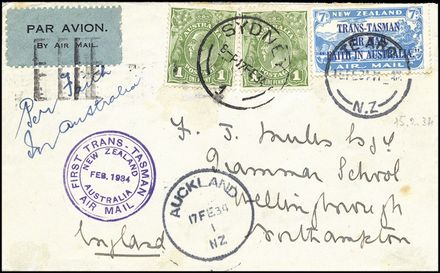 PAR AVION.
BY AIR MAIL.
Per Faith
In Australia
AUSTRALIA
1 1
SYDNEY
17FE34
7D NEW ZEALAND 7D
TRANS-TASMAN
AIR MAIL
"FAITH IN AUSTRALIA."
AIR MAIL
N.Z
FIRST TRANS-TASMAN
AIR MAIL
NEW ZEALAND
FEB. 1934
AUSTRALIA
AUCKLAND
17FE34
1
NZ
F. J. Esq
Grammar School
Wellingborough
Northampton
England